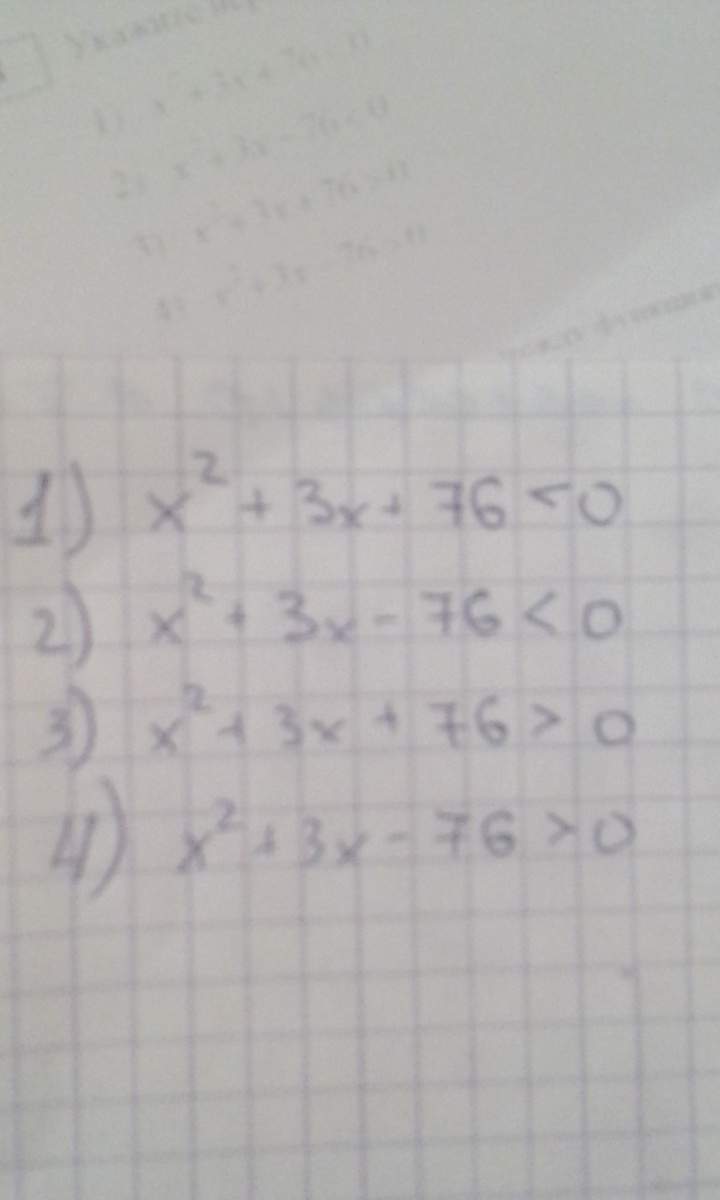 Укажите
1) x² + 3x + 76 < 0
2) x² + 3x - 76 < 0
3) x² + 3x + 76 > 0
4) x² + 3x - 76 > 0
1) x² + 3x + 76 < 0
2) x² + 3x - 76 < 0
3) x² + 3x + 76 > 0
4) x² + 3x - 76 > 0